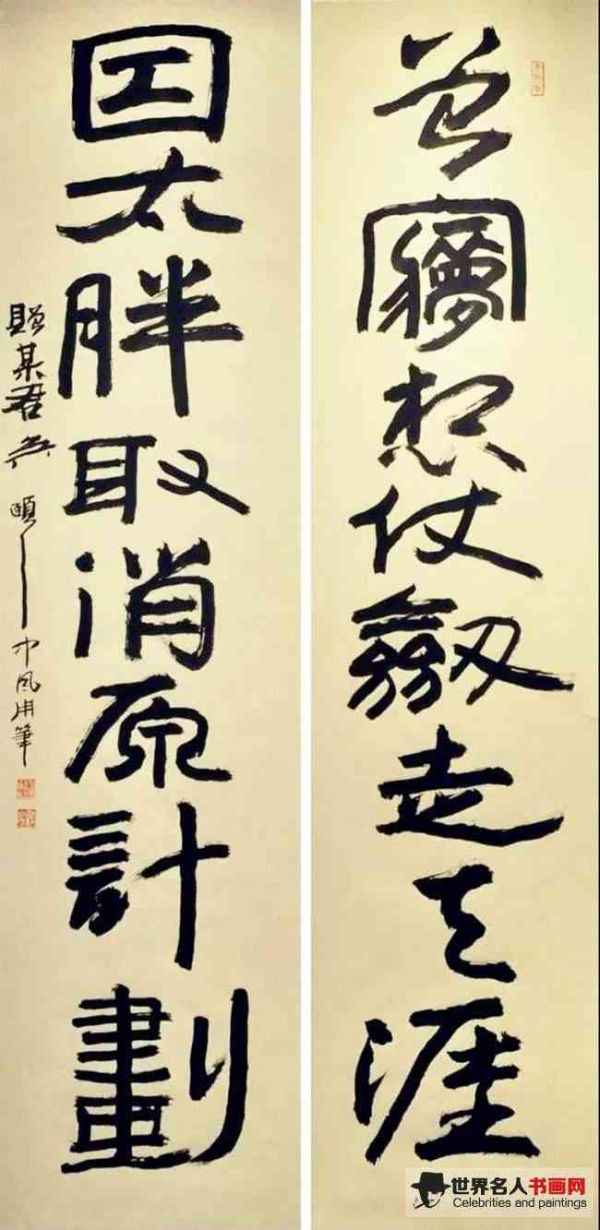 曾夢想仗劔走天涯
因太胖取消原計劃
贈某君 頤 中风用筆
世界名人书画网
Celebrities and paintings